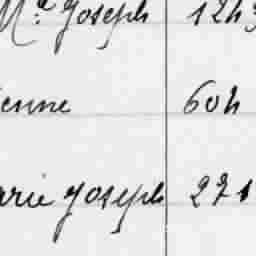 Mᵃ Joseph 12h3
ienne 60h
arie Joseph 271